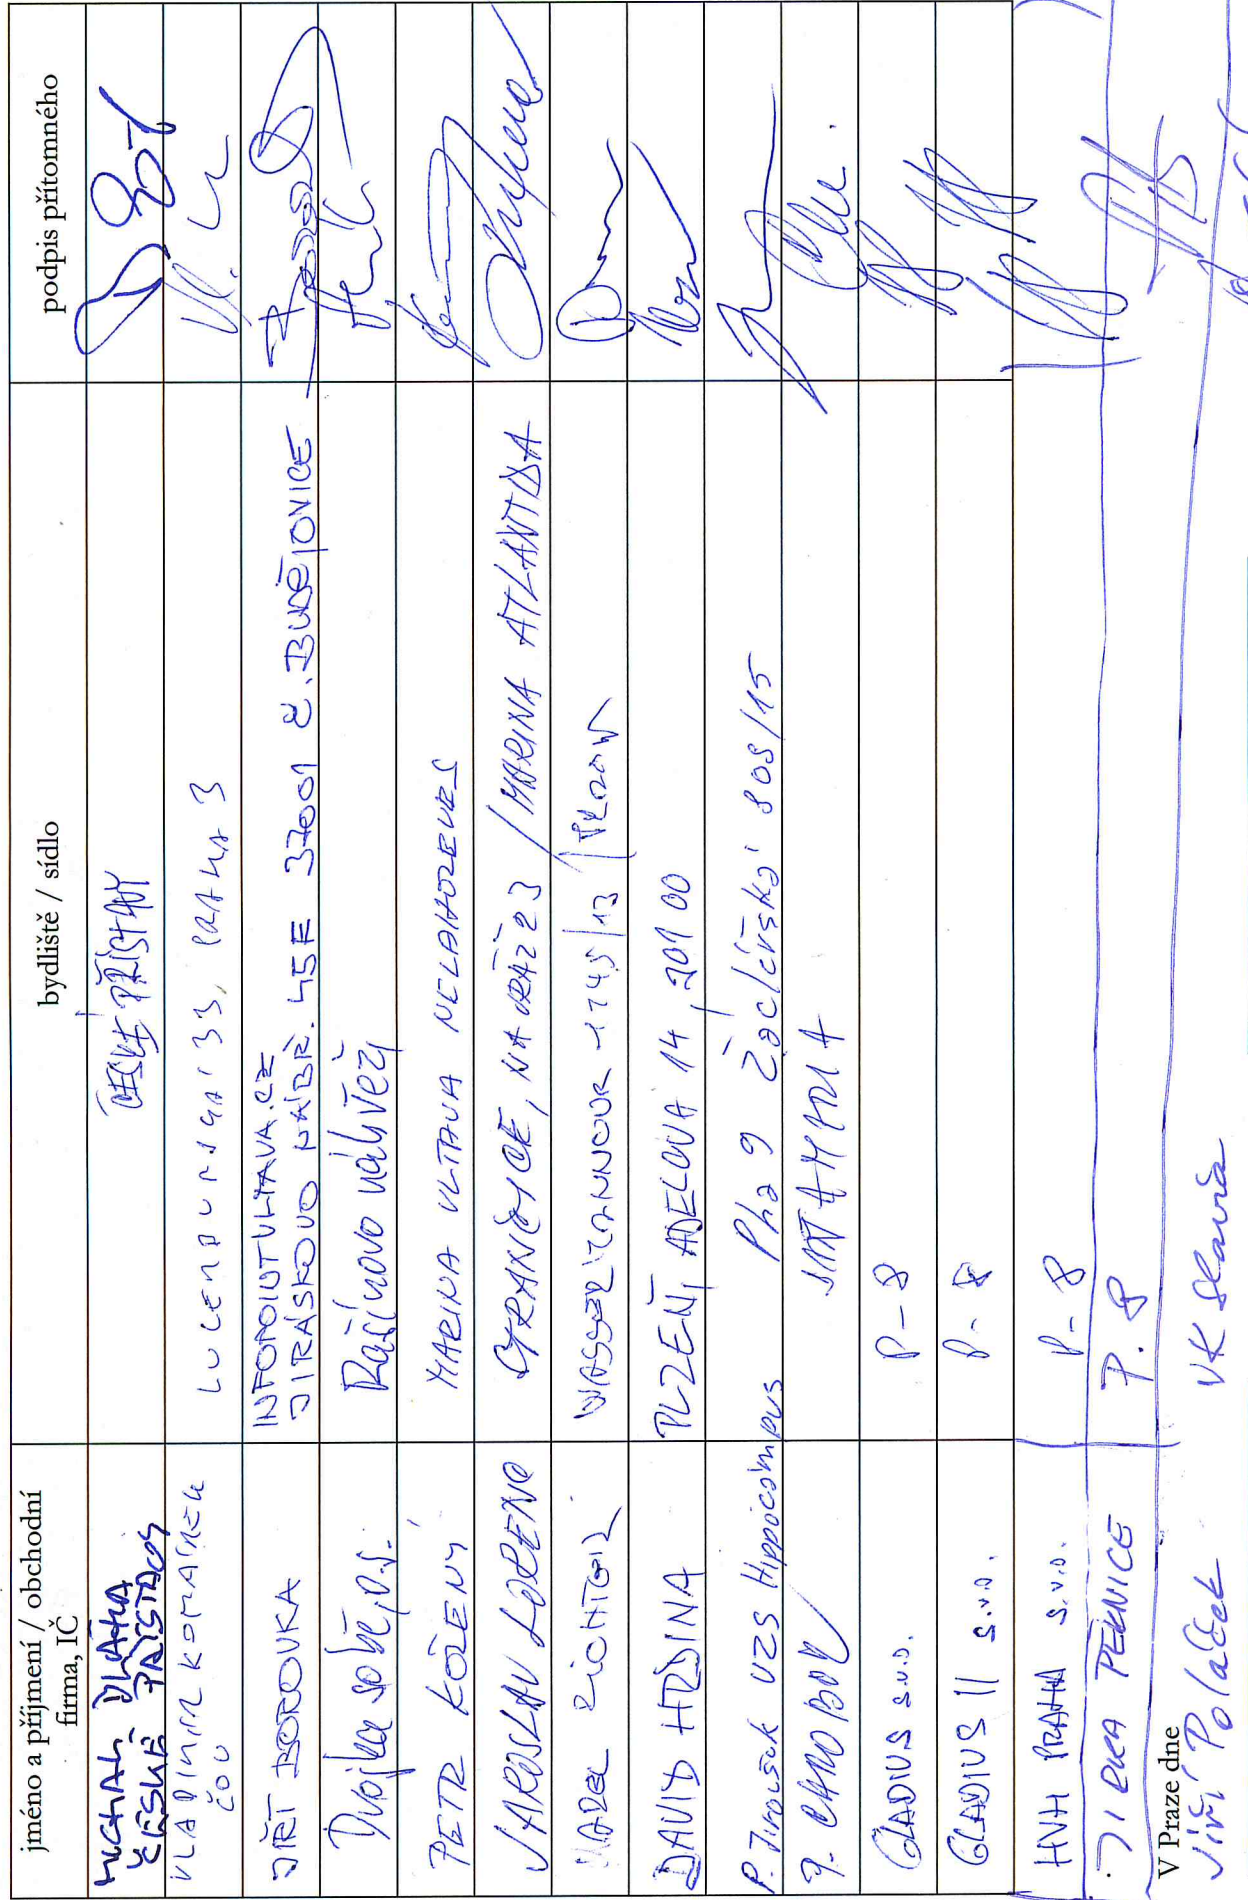 jméno a příjmení / obchodní firma, IČ bydliště / sídlo podpis přítomného
MICHAL BLÁHA ČESKÉ PŘÍSTAVY ČESKÉ PŘÍSTAVY
VLADIMÍR ČOV LUCEMBURSKÁ 33, PRAHA 3
JIŘÍ BOROVKA INFOPOUTVLTAVA.CZ
JIRÁSKOVO NÁBŘ. 45E 37001 Č. BUDĚJOVICE
Dvojka sobě, o.s. Rašínovo nábřeží
PETR KOŽENÝ MARINA VLTAVA NELAHOZEVES
JAROSLAV LORENC STRANČICE, NA DRÁZE 23 / MARINA ATLANTIDA
KAREL RICHTER 1745/13
DAVID HRDINA PLZEŇ, ADELOVA 14, 301 00
P. Jiroušek VZS Hippocampus Pha 9 Žacléřská 808/15
P. CHROBOK
GLADIUS s.v.o. P-8
GLADIUS II s.v.o. P-8
HVH PRAHA s.v.o. P-8
JIRKA PERNICE P. 8
V Praze dne
Jiří Polaček VK Slavia